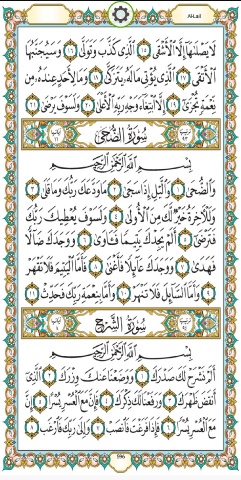 Al-Lail
لَا يَصْلَىٰهَآ إِلَّا ٱلْأَشْقَى ١٥ ٱلَّذِى كَذَّبَ وَتَوَلَّىٰ ١٦ وَسَيُجَنَّبُهَا
ٱلْأَتْقَى ١٧ ٱلَّذِى يُؤْتِى مَالَهُۥ يَتَزَكَّىٰ ١٨ وَمَا لِأَحَدٍ عِندَهُۥ مِن
نِّعْمَةٍ تُجْزَىٰٓ ١٩ إِلَّا ٱبْتِغَآءَ وَجْهِ رَبِّهِ ٱلْأَعْلَىٰ ٢٠ وَلَسَوْفَ يَرْضَىٰ ٢١
سُورَةُ الضُّحَى
بِسْمِ ٱللَّهِ ٱلرَّحْمَٰنِ ٱلرَّحِيمِ
وَٱلضُّحَىٰ ١ وَٱلَّيْلِ إِذَا سَجَىٰ ٢ مَا وَدَّعَكَ رَبُّكَ وَمَا قَلَىٰ ٣
وَلَلْءَاخِرَةُ خَيْرٌ لَّكَ مِنَ ٱلْأُولَىٰ ٤ وَلَسَوْفَ يُعْطِيكَ رَبُّكَ
فَتَرْضَىٰٓ ٥ أَلَمْ يَجِدْكَ يَتِيمًا فَـَٔاوَىٰ ٦ وَوَجَدَكَ ضَآلًّا
فَهَدَىٰ ٧ وَوَجَدَكَ عَآئِلًا فَأَغْنَىٰ ٨ فَأَمَّا ٱلْيَتِيمَ فَلَا تَقْهَرْ
٩ وَأَمَّا ٱلسَّآئِلَ فَلَا تَنْهَرْ ١٠ وَأَمَّا بِنِعْمَةِ رَبِّكَ فَحَدِّثْ ١١
سُورَةُ الشَّرْحِ
بِسْمِ ٱللَّهِ ٱلرَّحْمَٰنِ ٱلرَّحِيمِ
أَلَمْ نَشْرَحْ لَكَ صَدْرَكَ ١ وَوَضَعْنَا عَنكَ وِزْرَكَ ٢ ٱلَّذِىٓ
أَنقَضَ ظَهْرَكَ ٣ وَرَفَعْنَا لَكَ ذِكْرَكَ ٤ فَإِنَّ مَعَ ٱلْعُسْرِ يُسْرًا ٥ إِنَّ
مَعَ ٱلْعُسْرِ يُسْرًا ٦ فَإِذَا فَرَغْتَ فَٱنصَبْ ٧ وَإِلَىٰ رَبِّكَ فَٱرْغَب ٨
596